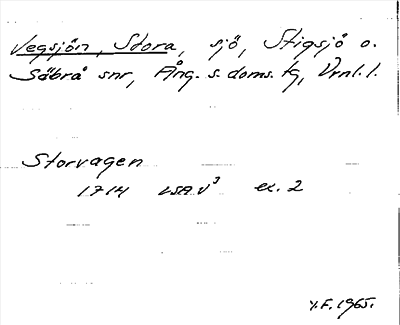 Vegsjön, Stora, sjö, Stigsjö o.
Säbrå snr, Ång. s. doms. tg, Vrnl. l.
Storvagen
1714 LSA V³ ex. 2
Y.F. 1965.